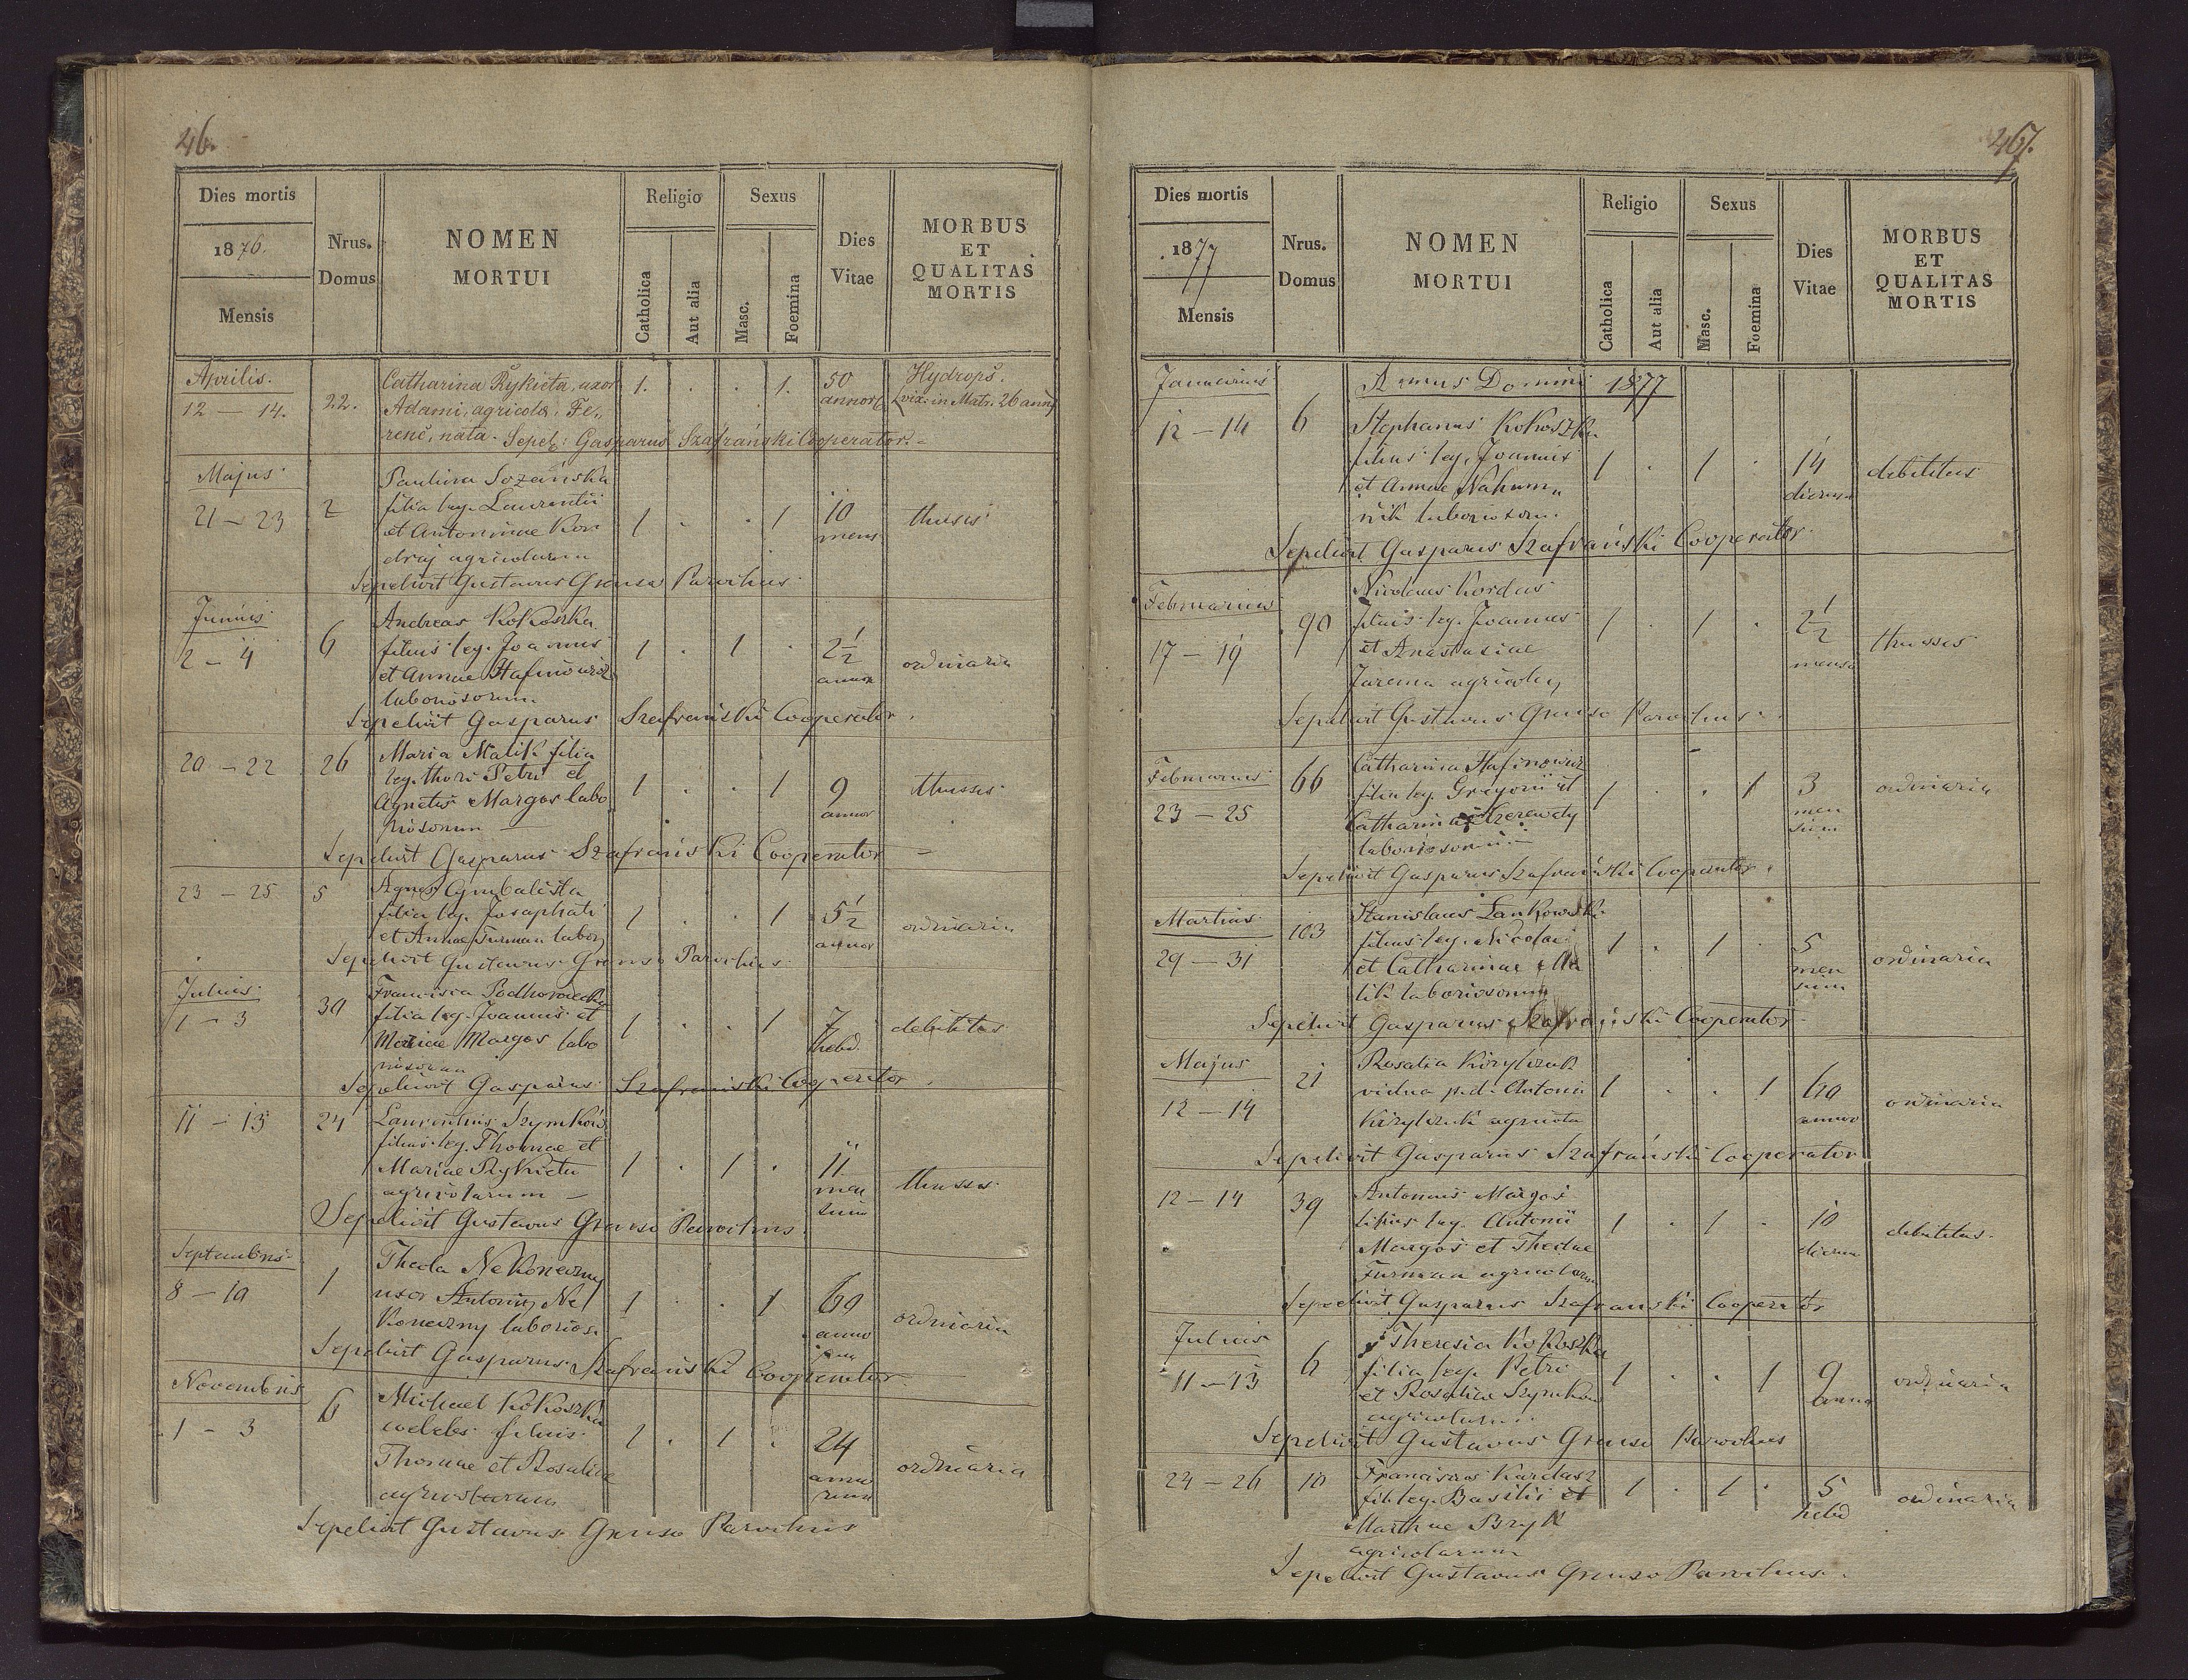 46.
Dies mortis
1876.
Mensis
Nrus.
Domus
NOMEN
MORTUI
Religio
Catholica
Aut alia
Sexus
Masc.
Foemina
Dies
Vitae
MORBUS
ET
QUALITAS
MORTIS
Aprilis.
12 – 14. 22. Catharina Rykieta, uxor 1. . . 1. 50 Hydrops.
Adami, agricola, Fe- annor vix. in Matr. 26 ann
renc, nata. Sepel: Gasparus Szafrański Cooperator.
Majus
21 – 23 2 Paulina Sozańska
filia leg. Laurentii
et Antoninae Kon 1 . . 1 10 mens thusis
draj agricolarum
Sepelivit Gustavus Grenso Parochus
Junius
2 – 4 6 Andreas Kokoszka
filius leg. Joannis 1 . 1 . 2½ ordinaria
et Annae Hafinowicz annor
laboriosorum
Sepelivit Gasparus Szafrański Cooperator.
20 – 22 26 Maria Malik filia
leg. thori Petri et
Agnetis Margos labo 1 . . 1 9 annor thusses
riosorum
Sepelivit Gasparus Szafrański Cooperator
23 – 25 5 Agnes Cymbalista
filia leg. Josaphati 1 . . 1 5½ ordinaria
et Annae Furman labor annor
Sepelivit Gustavus Grenso Parochus
Julius
1 – 3 30 Francisca Podhorodecka
filia leg. Joannis et 1 . . 1 7 debilitas
Mariae Margos labo hebd.
riosorum
Sepelivit Gasparus Szafrański Cooperator
11 – 13 24 Laurentius Szymków
filius leg. Thomae et
Mariae Rykieta 1 . 1 . 11 thusses
agricolarum men
sium
Sepelivit Gustavus Grenso Parochus
Septembris
8 – 10 1 Theda Nekoneczny
uxor Antonii Ne 1 . . 1 60 ordinaria
koneczny laborios. anno
rum
Sepelivit Gasparus Szafrański Cooperator
Novembris
1 – 3 6 Michael Kokoszka
coelebs filius 1 . 1 . 24 ordinaria
Thomae et Rosaliae anno
agricolarum rum
Sepelivit Gustavus Grenso Parochus
467.
Dies mortis
1877
Mensis
Nrus.
Domus
NOMEN
MORTUI
Religio
Catholica
Aut alia
Sexus
Masc.
Foemina
Dies
Vitae
MORBUS
ET
QUALITAS
MORTIS
Januarius Annus Domini 1877
12 – 14 6 Stephanus Kokoszka
filius leg. Joannis 1 . 1 . 14 debilitas
et Annae Nahum dierum
nik laboriosorum
Sepelivit Gasparus Szafrański Cooperator
Februarius
17 – 19 90 Nicolaus Kordas
filius leg. Joannes 1 . 1 . 2½ thusses
et Anastasiae mens
Jarema agricolar
Sepelivit Gustavus Grenso Parochus
Februarius
23 – 25 66 Catharina Hafinowicz
filia leg. Gregorii et 1 . . 1 3 ordinaria
Catharina Szerewaty men
laboriosorum sium
Sepelivit Gasparus Szafrański Cooperator.
Martius
29 – 31 103 Stanislaus Lankowski
filius leg. Nicolai 1 . 1 . 5 ordinaria
et Catharinae Ma men
lik laboriosorum sium
Sepelivit Gasparus Szafrański Cooperator
Majus
12 – 14 21 Rosalia Kirylczuk
vidua p.d. Antonii 1 . . 1 60 ordinaria
Kirylczuk agricola annor
Sepelivit Gasparus Szafrański Cooperator
12 – 14 39 Antonius Margos
filius leg. Antonii 1 . 1 . 10 debilitas.
Margos et Thedae dierum
Furman agricolarum
Sepelivit Gasparus Szafrański Cooperator
Julius
11 – 13 6 Theresia Kokoszka
filia leg. Petri 1 . . 1 9 ordinaria
et Rosaliae Szymków anno
agricolarum
Sepelivit Gustavus Grenso Parochus
24 – 26 10 Franciscus Kardasz 1 . 1 . 5 ordinaria
fil. leg. Basilii et hebd
Marthae Bryk
agricolarum
Sepelivit Gustavus Grenso Parochus.